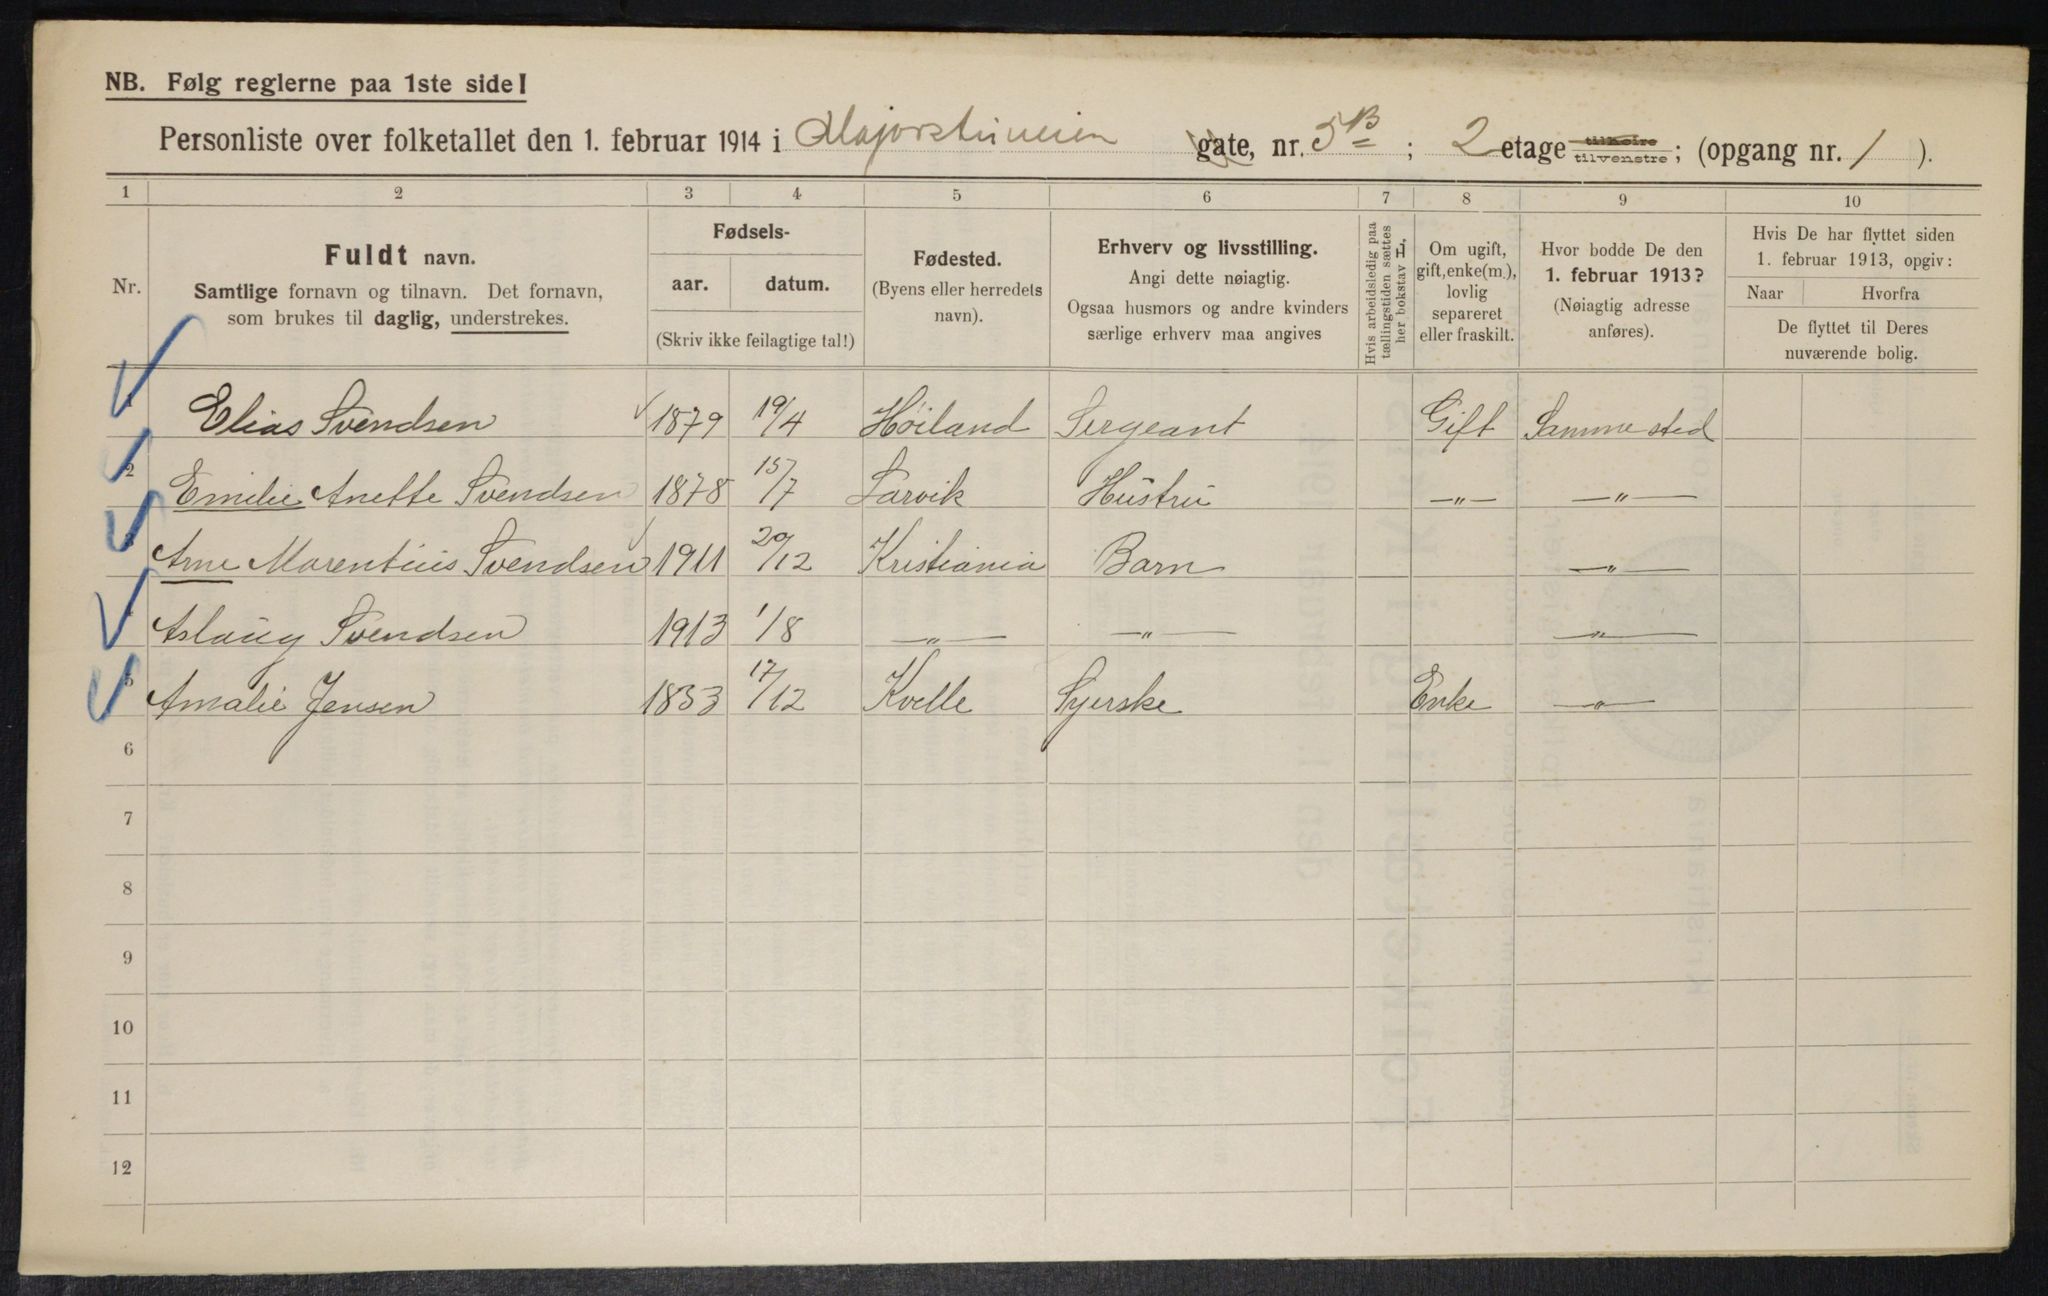 NB. Følg reglerne paa 1ste side!
Personliste over folketallet den 1. februar 1914 i Majorstuveien gate, nr. 5B ; 2 etage tilhøire tilvenstre; (opgang nr. 1 ).
1 2 3 4 5 6 7 8 9 10
Nr.
Fuldt navn.
Samtlige fornavn og tilnavn. Det fornavn,
som brukes til daglig, understrekes.
Fødsels-
aar. datum.
(Skriv ikke feilagtige tal!)
Fødested.
(Byens eller herredets
navn).
Erhverv og livsstilling.
Angi dette nøiagtig.
Ogsaa husmors og andre kvinders
særlige erhverv maa angives
Hvis arbeidsledig paa
tællingstiden sættes
her bokstav L.
Om ugift,
gift, enke(m.),
lovlig
separeret
eller fraskilt.
Hvor bodde De den
1. februar 1913?
(Nøiagtig adresse
anføres).
Hvis De har flyttet siden
1. februar 1913, opgiv:
Naar Hvorfra
De flyttet til Deres
nuværende bolig.
1 Elias Svendsen 1879 19/4 Høiland Sergeant Gift Samme sted
2 Emilie Anette Svendsen 1878 15/7 Larvik Hustru —„— —„—
3 Arne Marentius Svendsen 1911 29/12 Kristiania Barn —„—
4 Aslaug Svendsen 1913 1/8 —„— —„— —„—
5 Amalie Jensen 1853 17/12 Kvelle Syerske Enke —„—
6
7
8
9
10
11
12